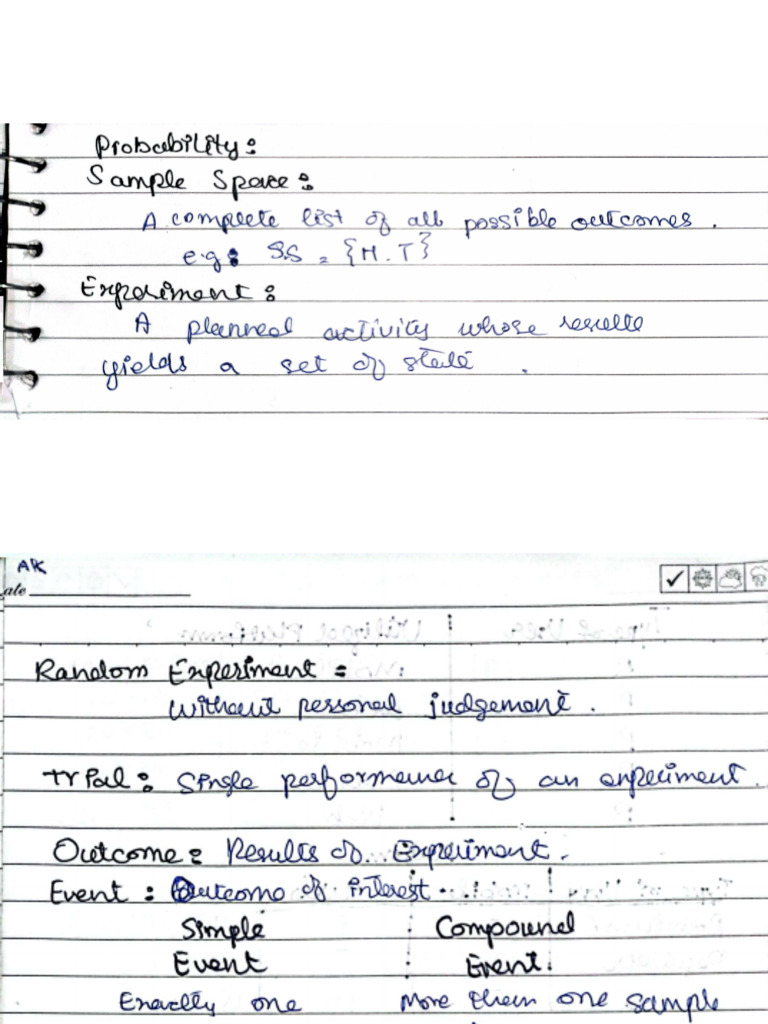 Probability:
Sample Space:
A complete list of all possible outcomes.
e.g: S.S = {H.T}
Experiment:
A planned activity whose results
yields a set of
AK
ate
Random Experiment =
without personal judgement.
Trial: Single performance of an experiment.
Outcome: Results of Experiment.
Event: Outcome of interest.
Simple Compound
Event Event.
Exactly one More than one sample